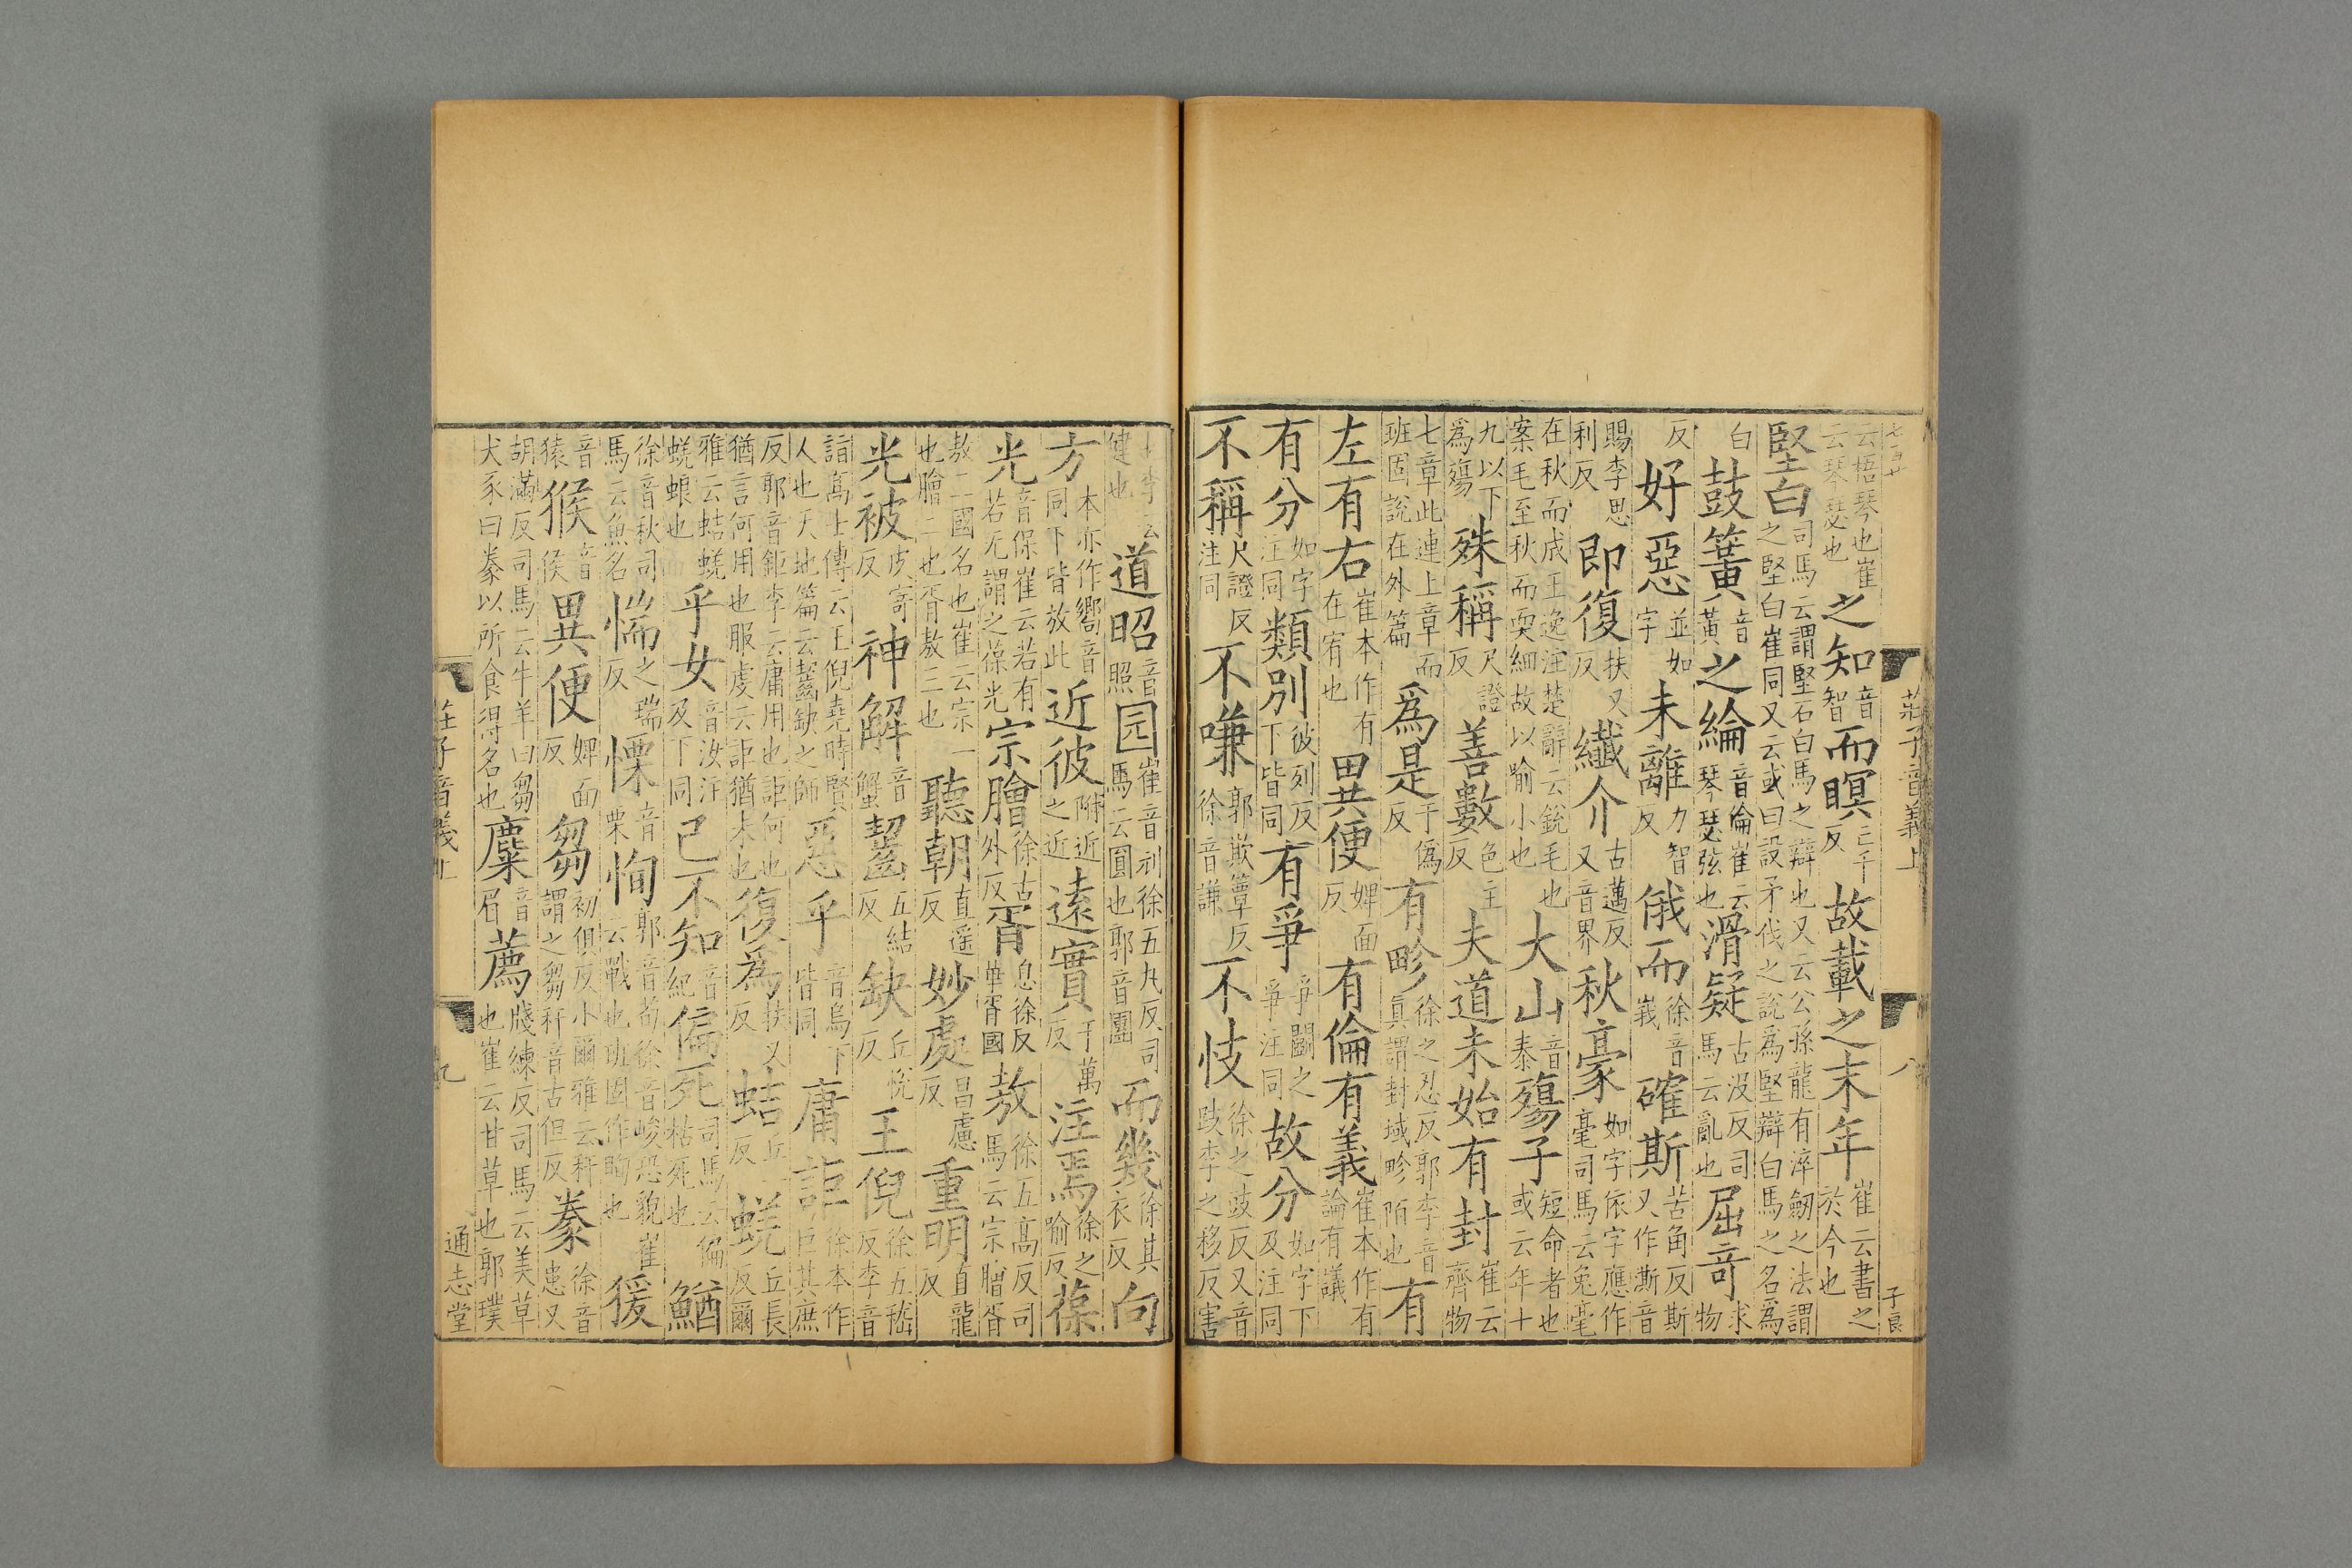 七百廿
莊子音義上
八
子良
云梧琴也崔云琴瑟也之知音智而瞑亡千反故載之末年崔云書之於今也
堅白司馬云謂堅石白馬之辯也又云公孫龍有淬劒之法謂之堅白崔同又云或曰設矛伐之說爲堅辯白馬之名爲
白鼓簧音黃之綸音倫崔云琴瑟弦也滑疑古沒反司馬云亂也屈奇求物
反好惡並如字未離力智反俄而徐音峩確斯苦角反斯又作澌音
賜李思利反即復扶又反纖介古邁反又音界秋豪如字依字應作毫司馬云兔毫
在秋而成王逸注楚辭云銳毛也案毛至秋而耎細故以喻小也大山音泰殤子短命者也或云年十
九以下爲殤殊稱尺證反善數色主反夫道未始有封崔云齊物
七章此連上章而班固說在外篇爲是于僞反有畛徐之忍反郭李音真謂封域畛陌也有
左有右崔本作有在宥也異便婢面反有倫有義崔本作有論有議
有分如字注同類別彼列反下皆同有爭爭鬭之爭注同故分如字下及注同
不稱尺證反注同不嗛郭欺簟反徐音謙不忮徐之豉反又音跂李之移反害
也李云健也道昭音照园崔音刓徐五丸反司馬云圓也郭音團而幾徐其衣反向
方本亦作嚮音同下皆放此近彼附近之近遠實于萬反注焉徐之喻反葆
光音保崔云若有若无謂之葆光宗膾徐古外反胥息徐反華胥國敖徐五高反司馬云宗膾胥
敖二國名也崔云宗一也膾二也胥敖三也聽朝直遥反妙處昌慮反重明直龍反
光被皮寄反神解音蟹齧五結反缺丘悅反王倪徐五嵇反李音
詣高士傳云王倪堯時賢人也天地篇云齧缺之師惡乎音烏下皆同庸詎徐本作巨其庶
反郭音鉅李云庸用也詎何也猶言何用也服虔云詎猶未也復爲扶又反蛣丘一反蜣丘良反爾
雅云蛣蜣蜣蜋也乎女音汝注及下同己不知音紀偏死司馬云偏枯死也鰌
徐音秋司馬云魚名惴之瑞反慄音栗恂郭音荀徐音峻恐貌崔云戰也班固作眴也猨
音猿猴音侯異便婢面反芻初俱反小爾雅云秆謂之芻秆音古但反豢徐音患又
胡滿反司馬云牛羊曰芻犬豕曰豢以所食得名也麋音眉薦牋練反司馬云美草也崔云甘草也郭璞
莊子音義上
九
通志堂